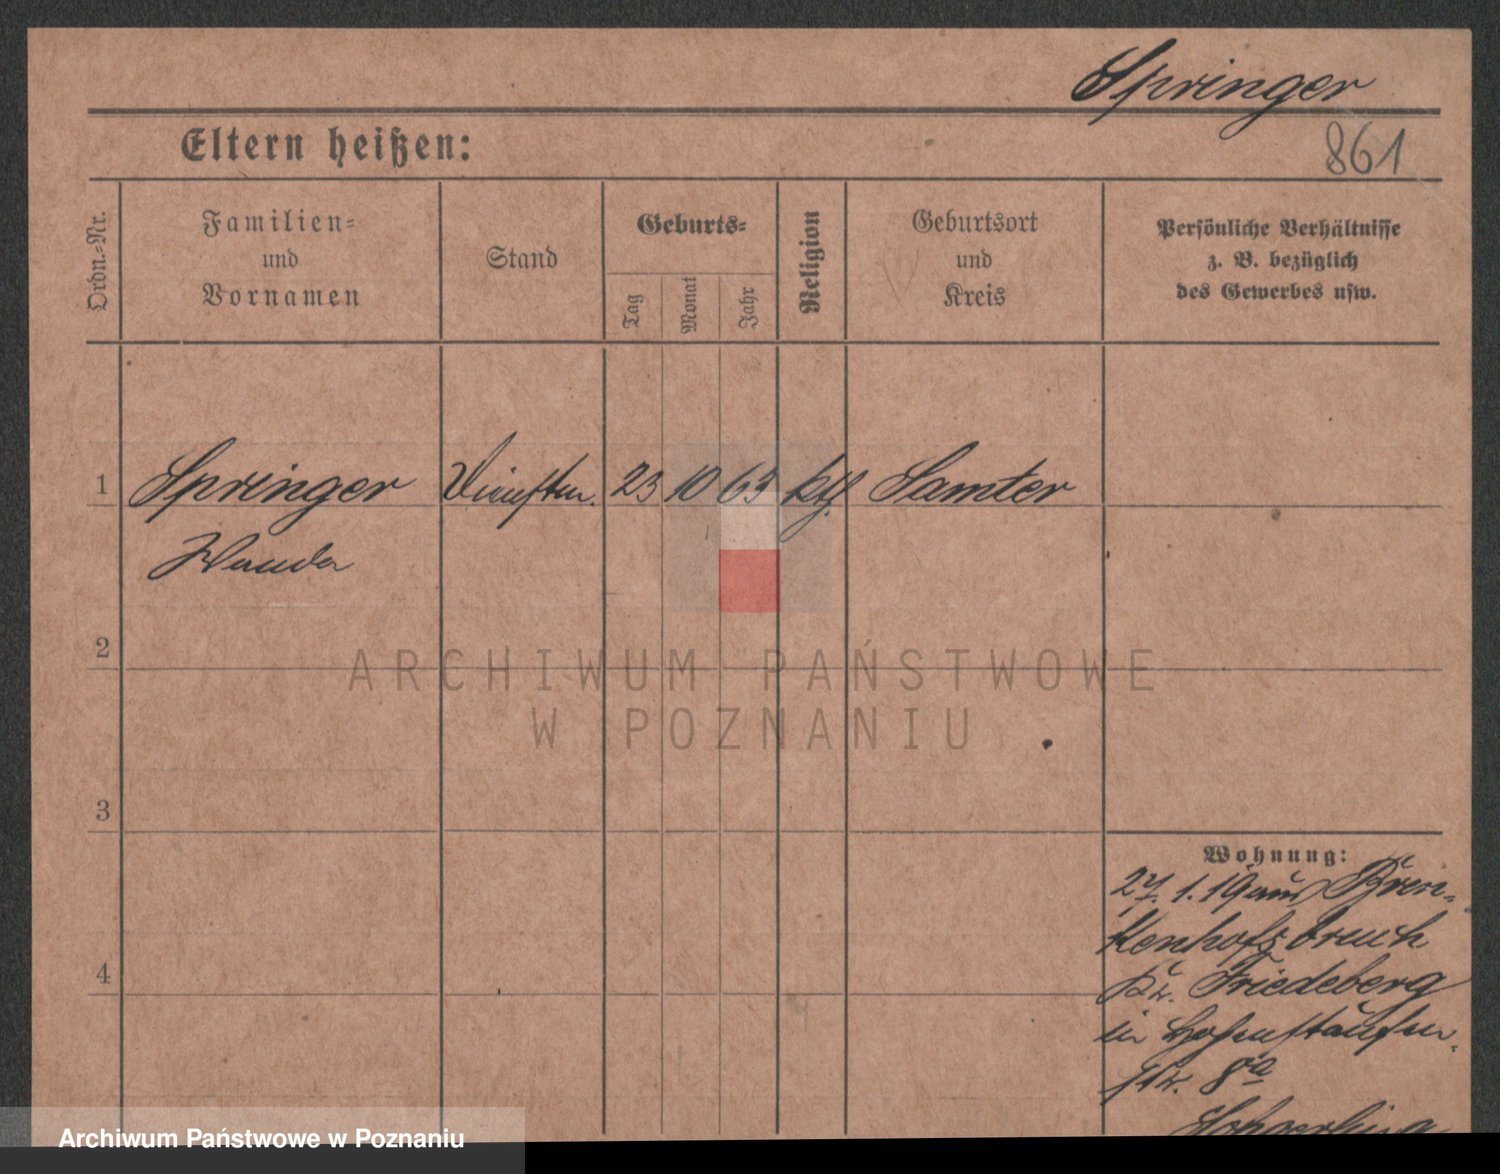 Springer
861
Eltern heißen:
Ordn.-Nr.
Familien-
und
Vornamen
Stand
Geburts-
Tag
Monat
Jahr
Religion
Geburtsort
und
Kreis
Persönliche Verhältnisse
z. B. bezüglich
des Gewerbes usw.
1 Springer 23 10 63 ktl. Samter
Wanda
2
ARCHIWUM PAŃSTWOWE
W POZNANIU
3
Wohnung:
27.1.19 aus Bren-
kenhofsbruch
Kr. Friedeberg
4
in Hohenstaufen-
str. 8a
Archiwum Państwowe w Poznaniu